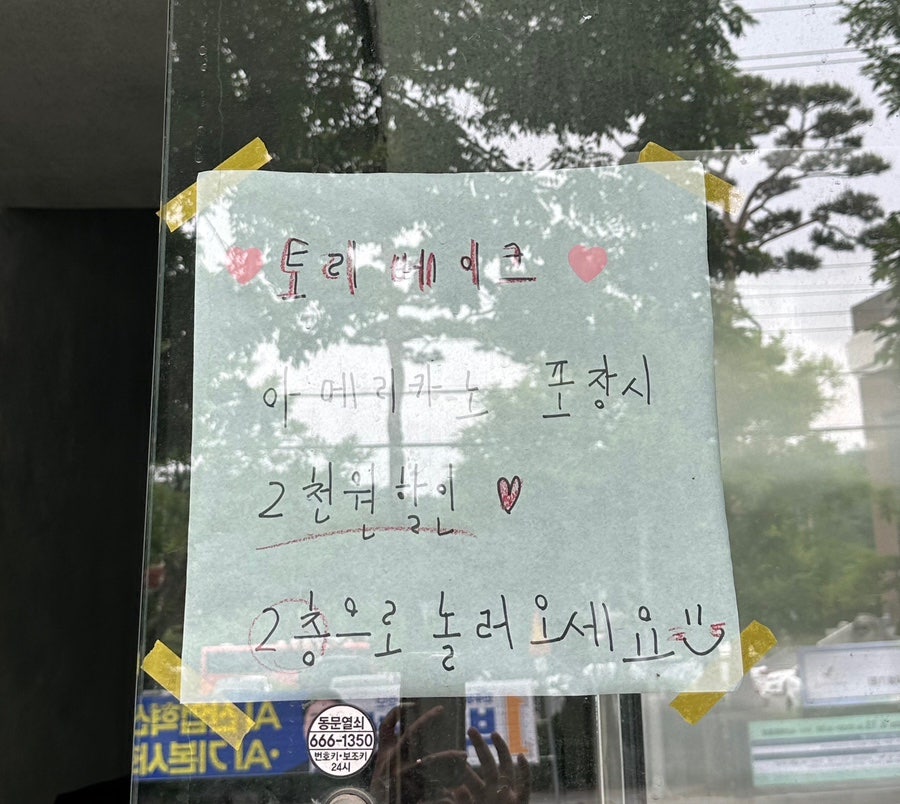 토리 베이크
아메리카노 포장시
2천원 할인
2층으로 놀러오세요
동문열쇠
666-1350
번호키·보조키
24시